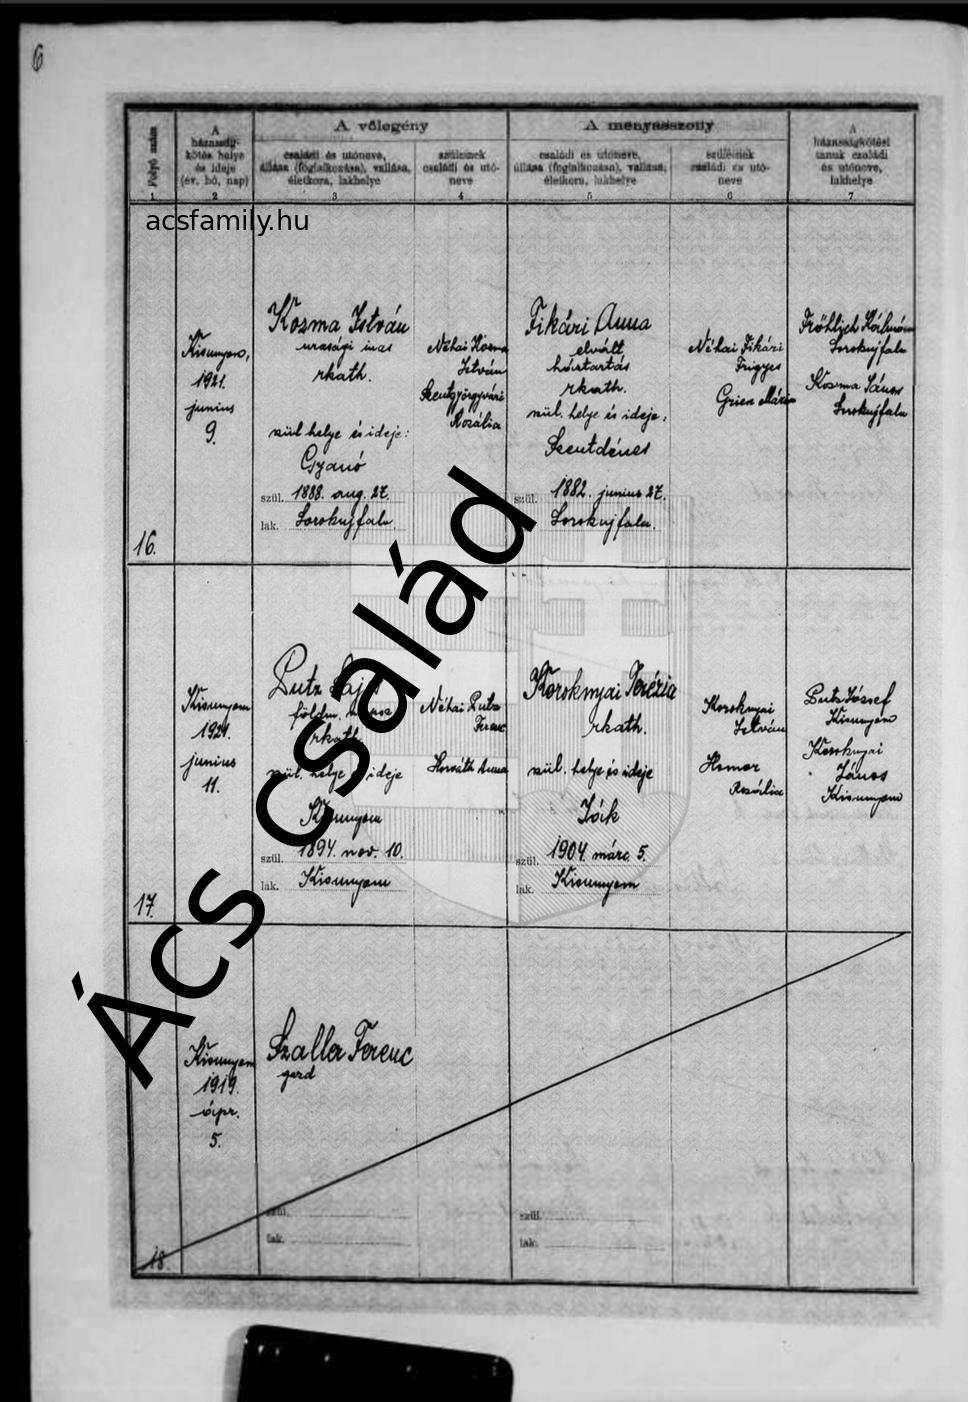 6
Folyó szám
A
házasság-
kötés helye
és ideje
(év, hó, nap)
A vőlegény
családi és utóneve,
állása (foglalkozása), vallása,
életkora, lakhelye
szüleinek
családi és utó-
neve
A menyasszony
családi és utóneve,
állása (foglalkozása), vallása,
életkora, lakhelye
szüleinek
családi és utó-
neve
A
házasságkötési
tanuk családi
és utóneve,
lakhelye
1
2
3
4
5
6
7
acsfamily.hu
16.
Kisunyom,
1921.
junius
9.
Kozma István
urasági inas
rkath.
szül. helye és ideje:
Gyanó
szül. 1888. aug. 27.
lak. Sorokujfalu.
Néhai Kozma
István
Szentgyörgyvári
Rozália
Fikári Anna
elvált
háztartás
rkath.
szül. helye és ideje:
Szentdénes
szül. 1882. junius 27.
lak. Sorokujfalu.
Néhai Fikári
Frigyes
Grien Mária
Fröhlich Kálmán
Sorokujfalu
Kozma János
Sorokujfalu
17.
Kisunyom
1921.
junius
11.
Putz Lajos
földm.
rkath.
szül. helye és ideje
Kisunyom
szül. 1894. nov. 10.
lak. Kisunyom
Néhai Putz
Ferenc
Horváth Anna
Koroknyai Terézia
rkath.
szül. helye és ideje
Ják
szül. 1904. márc. 5.
lak. Kisunyom
Koroknyai
István
Homor
Rozália
Putz József
Kisunyom
Koroknyai
János
Kisunyom
Ács család
18.
Kisunyom
1919.
ápr.
5.
Szaller Ferenc
gazd
szül.
lak.
szül.
lak.